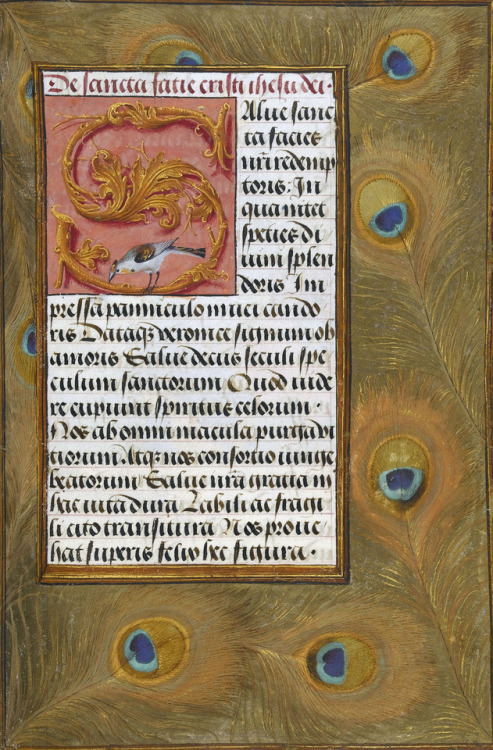 De sancta facie cristi ihesu dei.
Alue sanc
ta facies
nr̄i redemp
toris: In
qua nitet
species di
uini splen
doris Im
pressa panniculo niuei cando
ris Dataqꝫ veronice signum ob
amoris Salue decus seculi spe
culum sanctorum Quod uide
re cupiunt spiritus celorum .
Nos ab omni macula purga vi
ciorum Atqꝫ nos consortio iunge
beatorum Salue nr̄a gratia in
hac uita dura Labili ac fragi
li cito transitura Nos proue
hat superis felix hec figura .